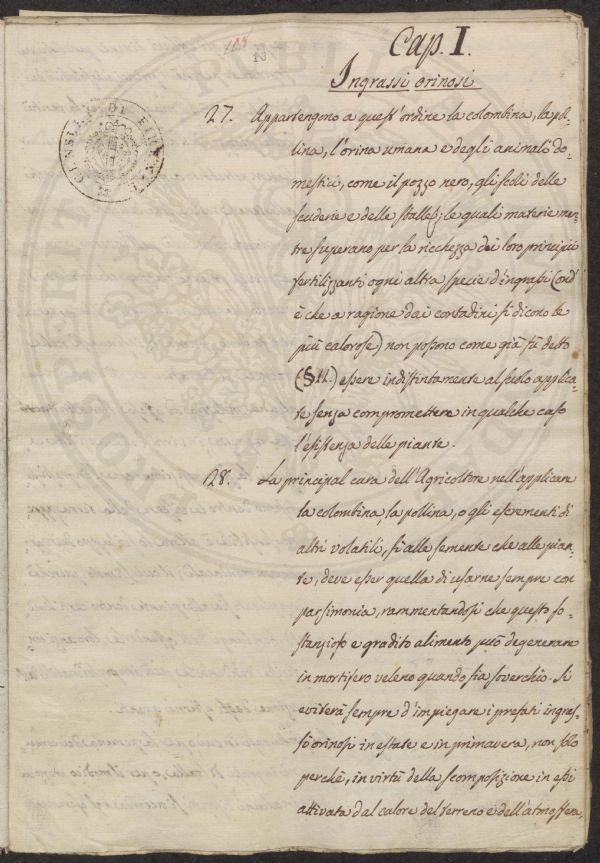 108
13
Cap. I.
Ingrassi orinosi
27. Appartengono a quest'ordine la colombina, la pol-
lina, l'orina umana e degli animali do-
mestici, come il pozzo nero, gli scoli delle
scuderie e delle stalle; le quali materie men-
tre superano per la ricchezza dei loro principii
fertilizzanti ogni altra specie d'ingrassi (ond'
è che a ragione dai contadini si dicono le
più calorose) non possono come già fù detto
(§ 12.) essere indistintamente al suolo applica-
te senza compromettere in qualche caso
l'esistenza delle piante.
28. La principal cura dell'Agricoltore nell'applicare
la colombina, la pollina, o gli escrementi di
altri volatili, sì alle semente che alle pian-
te, deve esser quella di usarne sempre con
parsimonia, rammentandosi che questo so-
stanzioso e gradito alimento può degenerare
in mortifero veleno quando sia soverchio. Si
eviterà sempre d'impiegare i prefati ingras-
si orinosi in estate e in primavera, non solo
perchè, in virtù della scomposizione in essi
attivata dal calore del terreno e dell'atmosfera,